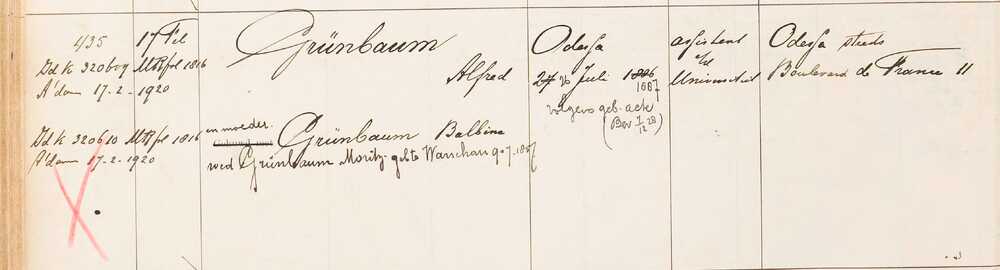 435 17 Feb Grünbaum Odessa assistent Odessa steeds
Idk 320609 MRfol 1816 Alfred 27 26 Juli 1886 a/d Boulevard de France 11
A'dam 17-2-1920 1887 Universiteit
volgens geb. acte
(Bev 7/12 28)
Idk 320610 MRfol 1816 en moeder. Grünbaum Balbina
A'dam 17-2-1920 wed Grünbaum Moritz geb te Warschau 9-7-1857